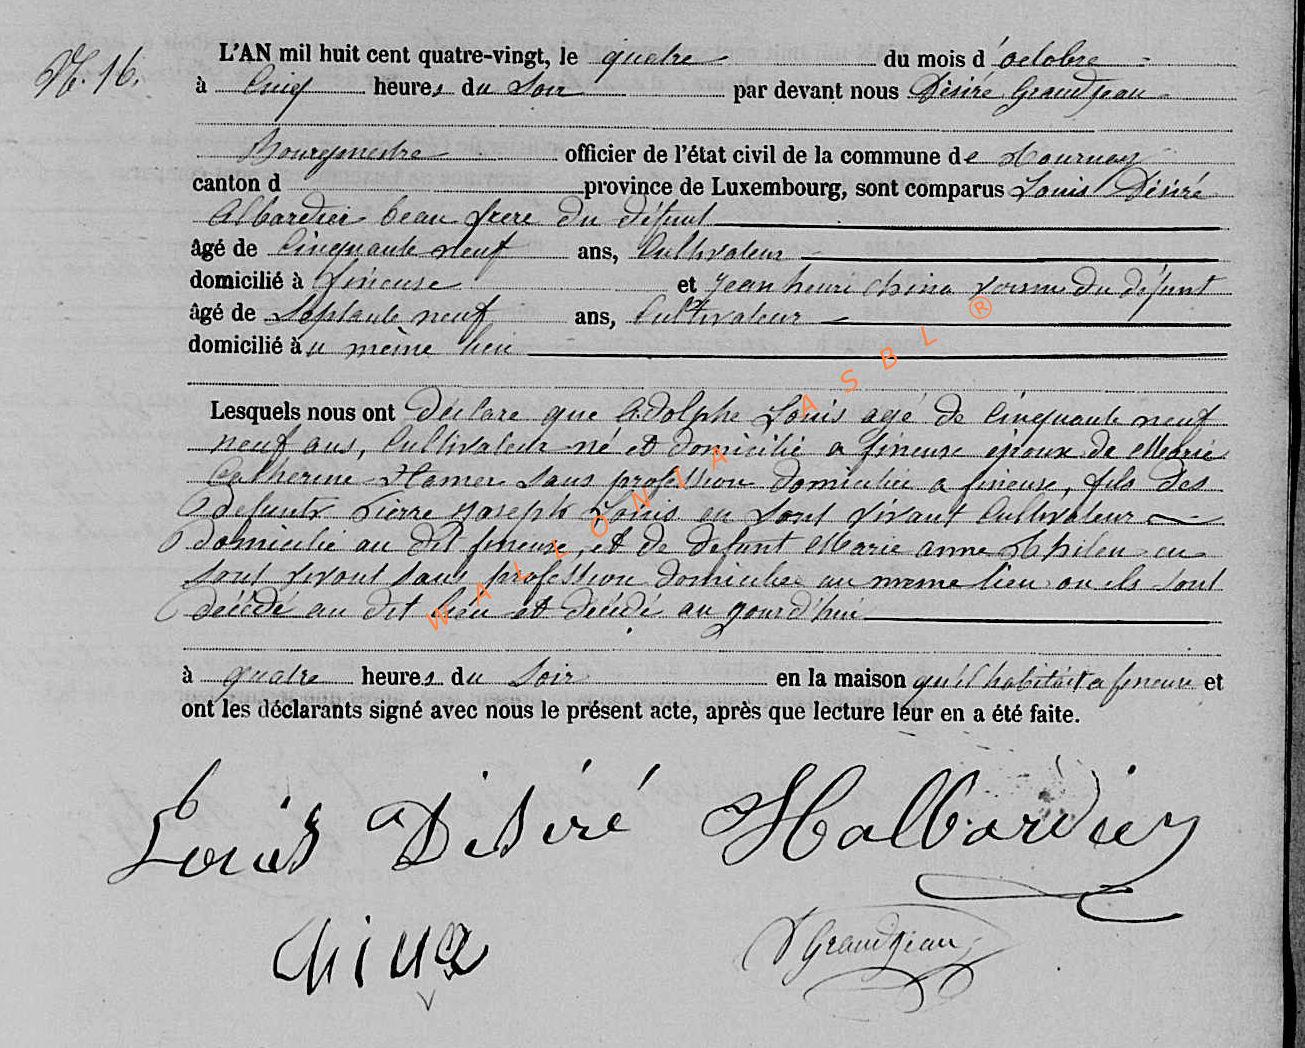 N. 16.
L'AN mil huit cent quatre-vingt, le quatre du mois d'octobre
à Cinq heures du Soir par devant nous Désiré Grandjean
Bourgmestre officier de l'état civil de la commune de Tournay
canton d province de Luxembourg, sont comparus Louis Désiré
Albardier beau frere du défunt
âgé de Cinquante neuf ans, Cultivateur
domicilié à fineuse et Jean henri China voisin du défunt
âgé de Septante neuf ans, Cultivateur
domicilié au même lieu
Lesquels nous ont déclare que Adolphe Louis agé de Cinquante neuf
neuf ans, Cultivateur né et domicilié a fineuse époux de Marie
Catherine Hamer sans profession domiciliée a fineuse, fils des
défunts Pierre Joseph Louis en sont vivant Cultivateur
domicilié au dit fineuse, et de defunt Marie anne en
sont vivant sans profession domiciliée au meme lieu ou ils sont
décédé au dit lieu et décédé au jourd'hui
à quatre heures du Soir en la maison qu'il habitait a fineuse et
ont les déclarants signé avec nous le présent acte, après que lecture leur en a été faite.
Louis Désiré Halbardier
China
D Grandjean
WALLONIA ASBL ®